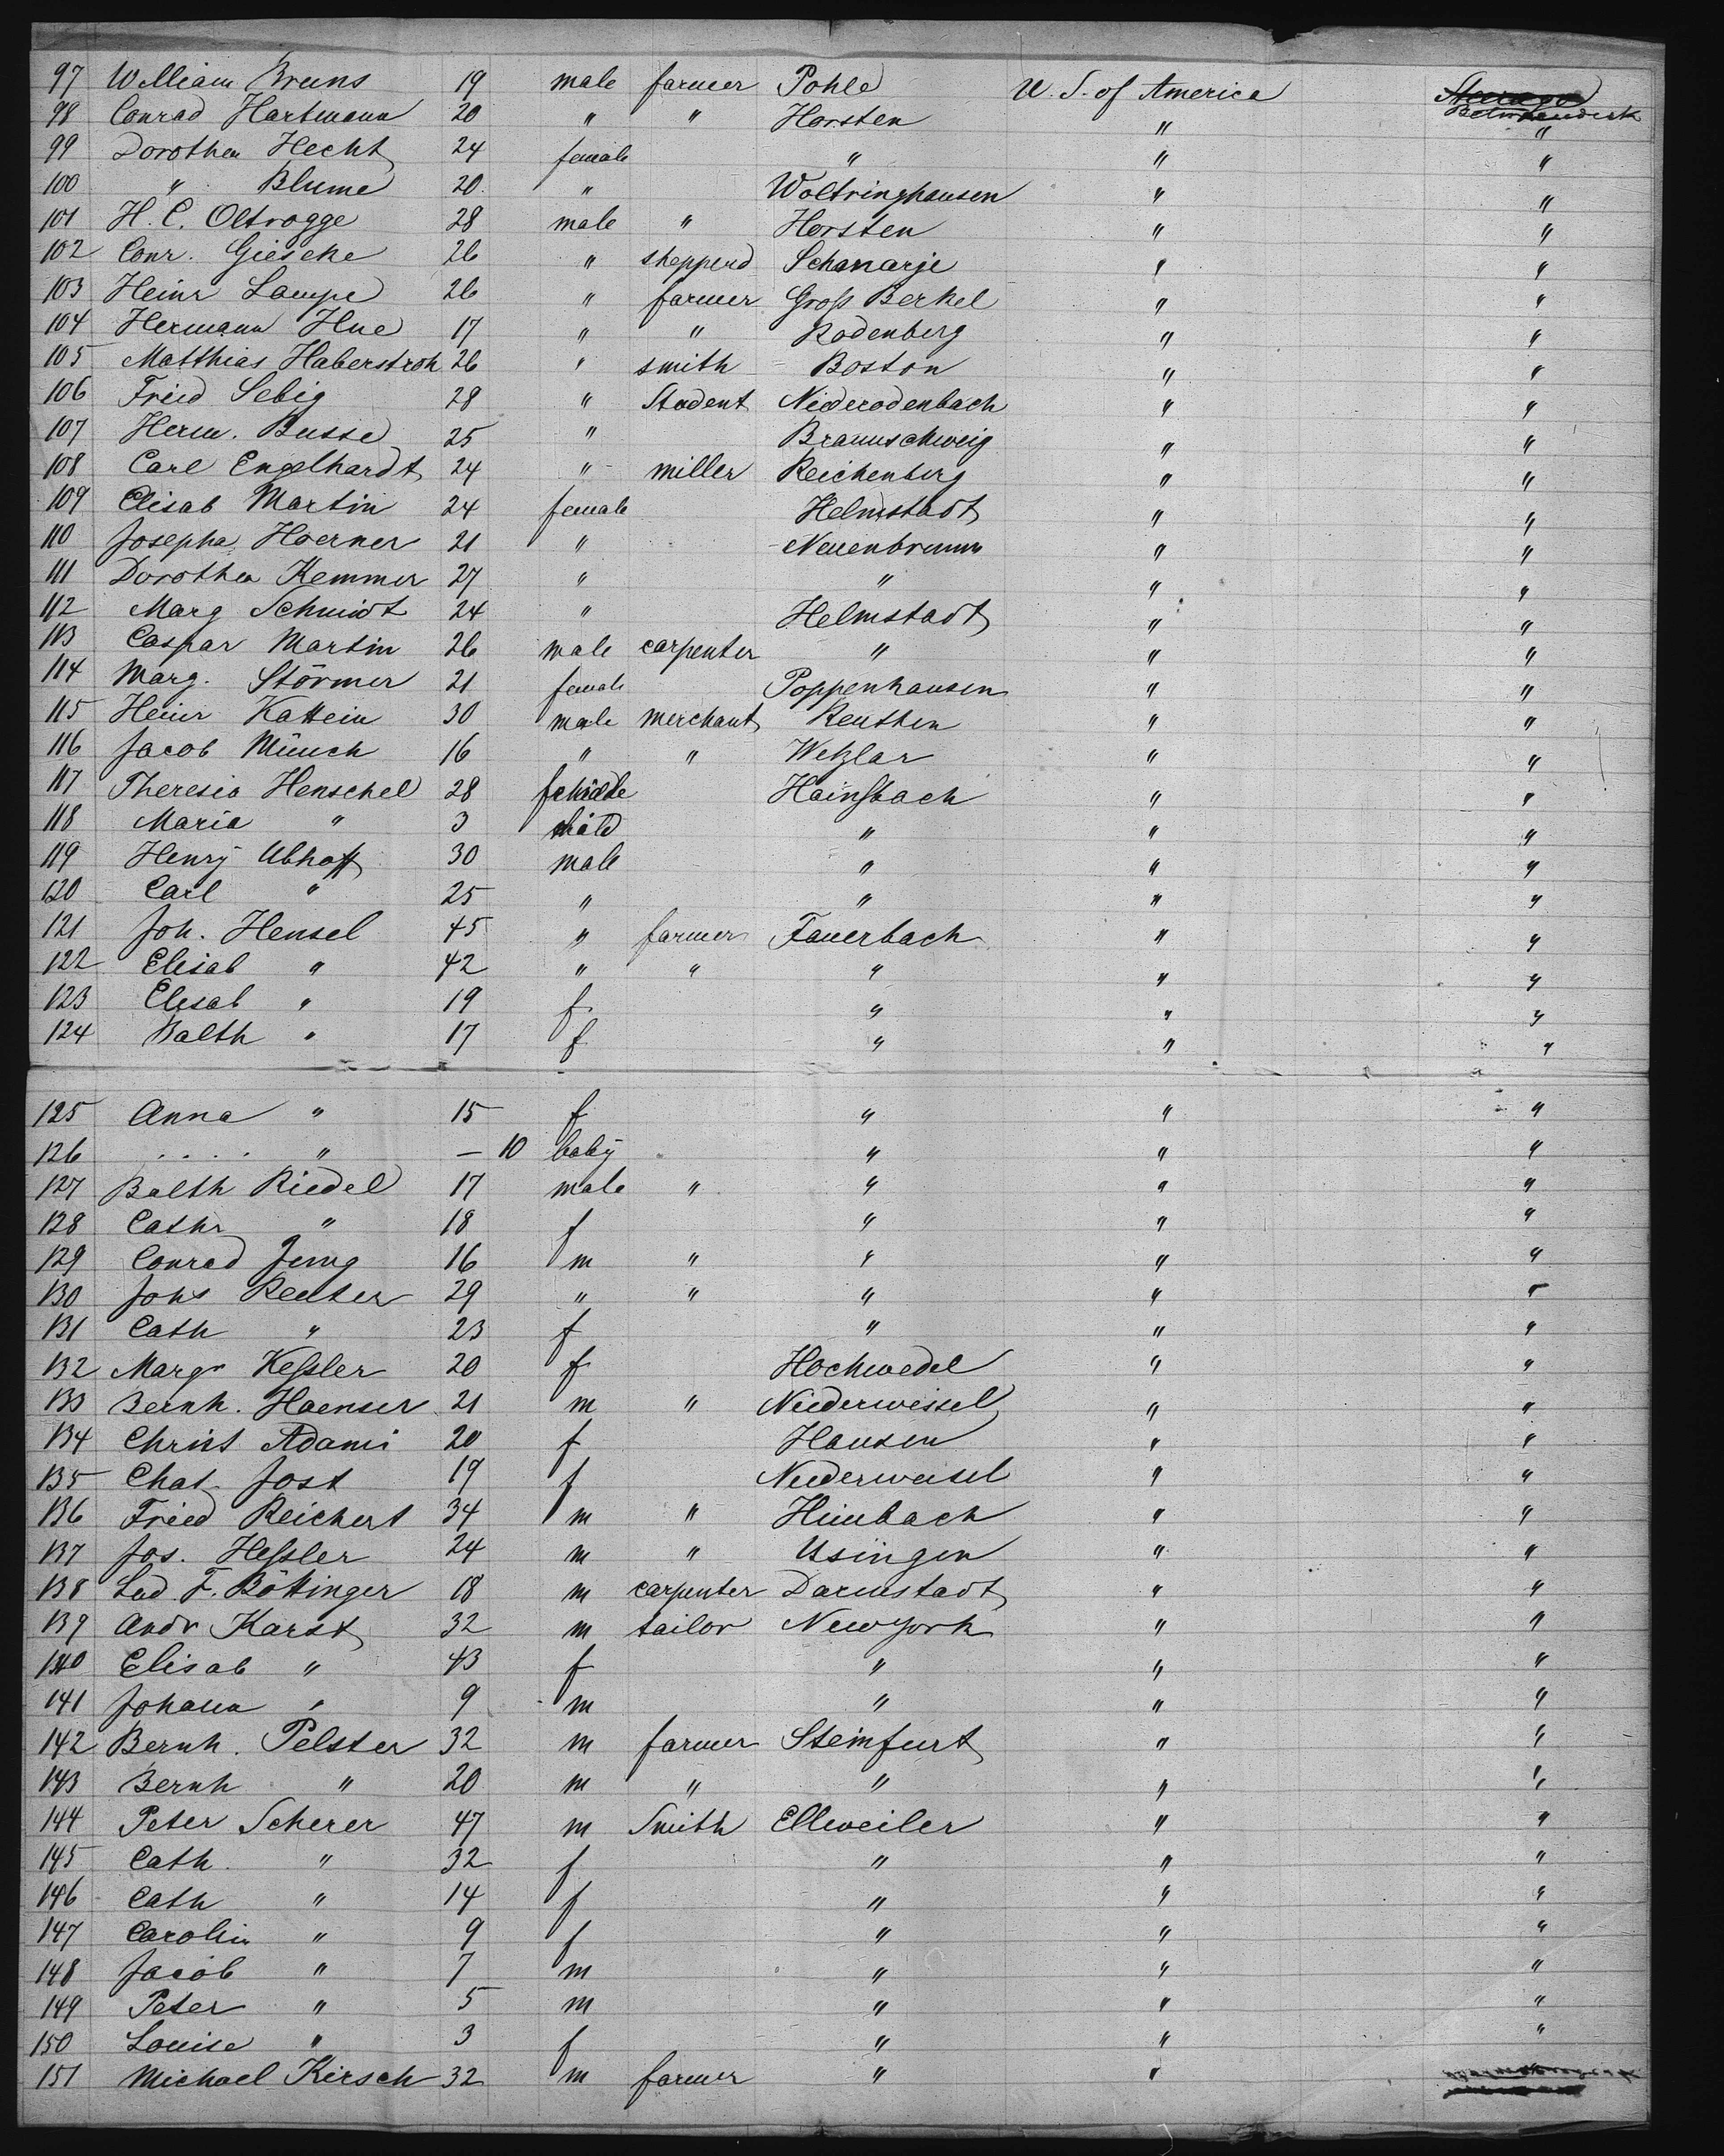 97 William Bruns 19 male farmer Pohle U. S. of America
98 Conrad Hartmann 20 " " Horsten " "
99 Dorothea Hecht 24 female " " "
100 " Blume 20 " Woltringhausen " "
101 H. C. Oltrogge 28 male " Horsten " "
102 Conr. Gieseke 26 " shepperd Scharnarje " "
103 Heinr Lampe 26 " farmer Groß Berkel " "
104 Hermann Hue 17 " " Rodenberg " "
105 Matthias Haberstroh 26 " smith Boston " "
106 Fried Sebig 28 " Student Niederodenbach " "
107 Herm. Busse 25 " Braunschweig " "
108 Carl Engelhardt 24 " miller Reichenberg " "
109 Elisab Martin 24 female Helmstadt " "
110 Josepha Hoerner 21 " Neuenbrunn " "
111 Dorothea Kemmer 27 " " " "
112 Marg Schmidt 24 " Helmstadt " "
113 Caspar Martin 26 male carpenter " " "
114 Marg. Störmer 21 female Poppenhausen " "
115 Heinr Kattein 30 male merchant Reuthen " "
116 Jacob Münch 16 " " Wetzlar " "
117 Theresia Henschel 28 Hainsbach " "
118 Maria " 3 child " " "
119 Henry Ubhoff 30 male " " "
120 Carl " 25 " " " "
121 Joh. Hensel 45 " farmer Fauerbach " "
122 Elisab " 42 " " " " "
123 Elisab " 19 f " " "
124 Balth " 17 f " " "
125 Anna " 15 f " " "
126 ..... " – 10 baby " " "
127 Balth Riedel 17 male " " " "
128 Cathr " 18 f " " "
129 Conrad Jung 16 m " " " "
130 Johs Reuter 29 " " " " "
131 Cath " 23 f " " "
132 Margr Keßler 20 f Hochwedel " "
133 Bernh. Haenser 21 m " Niederweisel " "
134 Christ Adami 20 f Hausen " "
135 Chat. Jost 19 f Niederweisel " "
136 Fried Reichert 34 m " Himbach " "
137 Jos. Heßler 24 m " Usingen " "
138 Lud. F. Böttinger 18 m carpenter Darmstadt " "
139 Andr Karst 32 m tailor New York " "
140 Elisab " 43 f " " "
141 Johann " 9 m " " "
142 Bernh. Pelster 32 m farmer Steinfurt " "
143 Bernh " 20 m " " " "
144 Peter Scherer 47 m Smith Ellweiler " "
145 Cath. " 32 f " " "
146 Cath " 14 f " " "
147 Carolin " 9 f " " "
148 Jacob " 7 m " " "
149 Peter " 5 m " " "
150 Louise " 3 f " " "
151 Michael Kirsch 32 m farmer " "